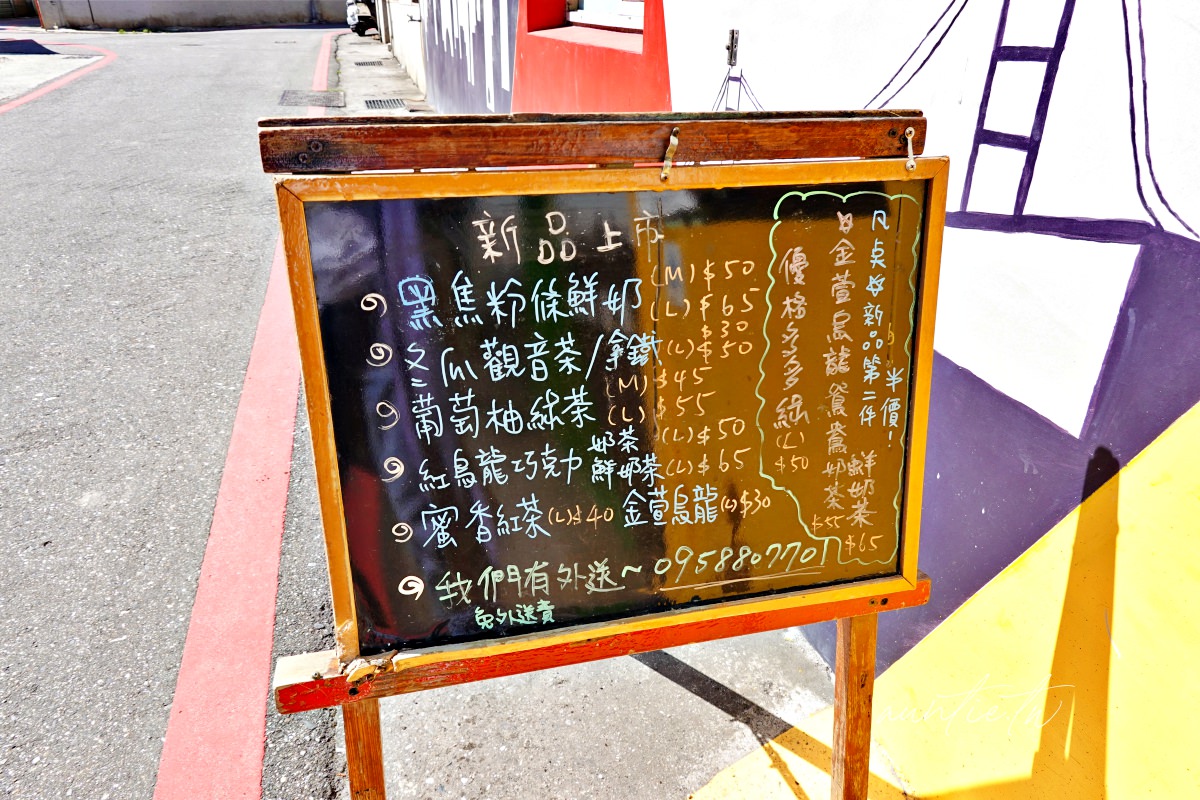 新品上市
黑焦粉條鮮奶 (M) $50
(L) $65
冬瓜觀音茶/拿鐵 $30
(L) $50
葡萄柚綠茶 (M) $45
(L) $55
紅烏龍巧克力 奶茶 (L) $50
鮮奶茶 (L) $65
蜜香紅茶 (L) $40 金萱烏龍 (L) $30
我們有外送~ 0958807701
免外送費
凡點 新品第二件
半價!
金萱烏龍鴛鴦奶茶 $55
鮮奶茶 $65
優格多多綠 (L) $50